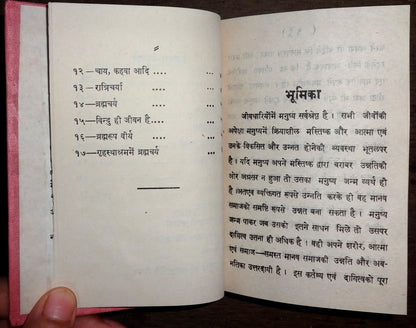 १२—चाय, कहवा आदि .... ...
१३—रात्रिचर्या .... ...
१४—ब्रह्मचर्य ... ...
१५—विन्दु ही जीवन है... ...
१६—ब्रह्मरूप वीर्य ... ...
१७—गृहस्थाश्रममें ब्रह्मचर्य ...
भूमिका
जीवधारियोंमें मनुष्य सर्वश्रेष्ठ है । सभी जीवोंकी
अपेक्षा मनुष्यमें क्रियाशील मस्तिष्क और आत्मा एवं
उनके विकसित और उन्नत होनेकी व्यवस्था भूतलपर
है । यदि मनुष्य अपने मस्तिष्क द्वारा बराबर उन्नतिकी
ओर अग्रसर न हुआ तो उसका मनुष्य जन्म व्यर्थ ही
है ।अतएव व्यक्तिगत रूपसे उन्नति करके ही वह मानव
समाजको समष्टि रूपसे उन्नत बना सकता है । मनुष्य
जन्म पाकर जब उसको इतने साधन मिले तो उसपर
दायित्व उतना ही अधिक है । वही अपने शरीर, आत्मा
एवं समाज—समस्त मानव समाजकी उन्नति और अव-
नतिका उत्तरदायी है । इस कर्तव्य एवं दायित्वको पूरा